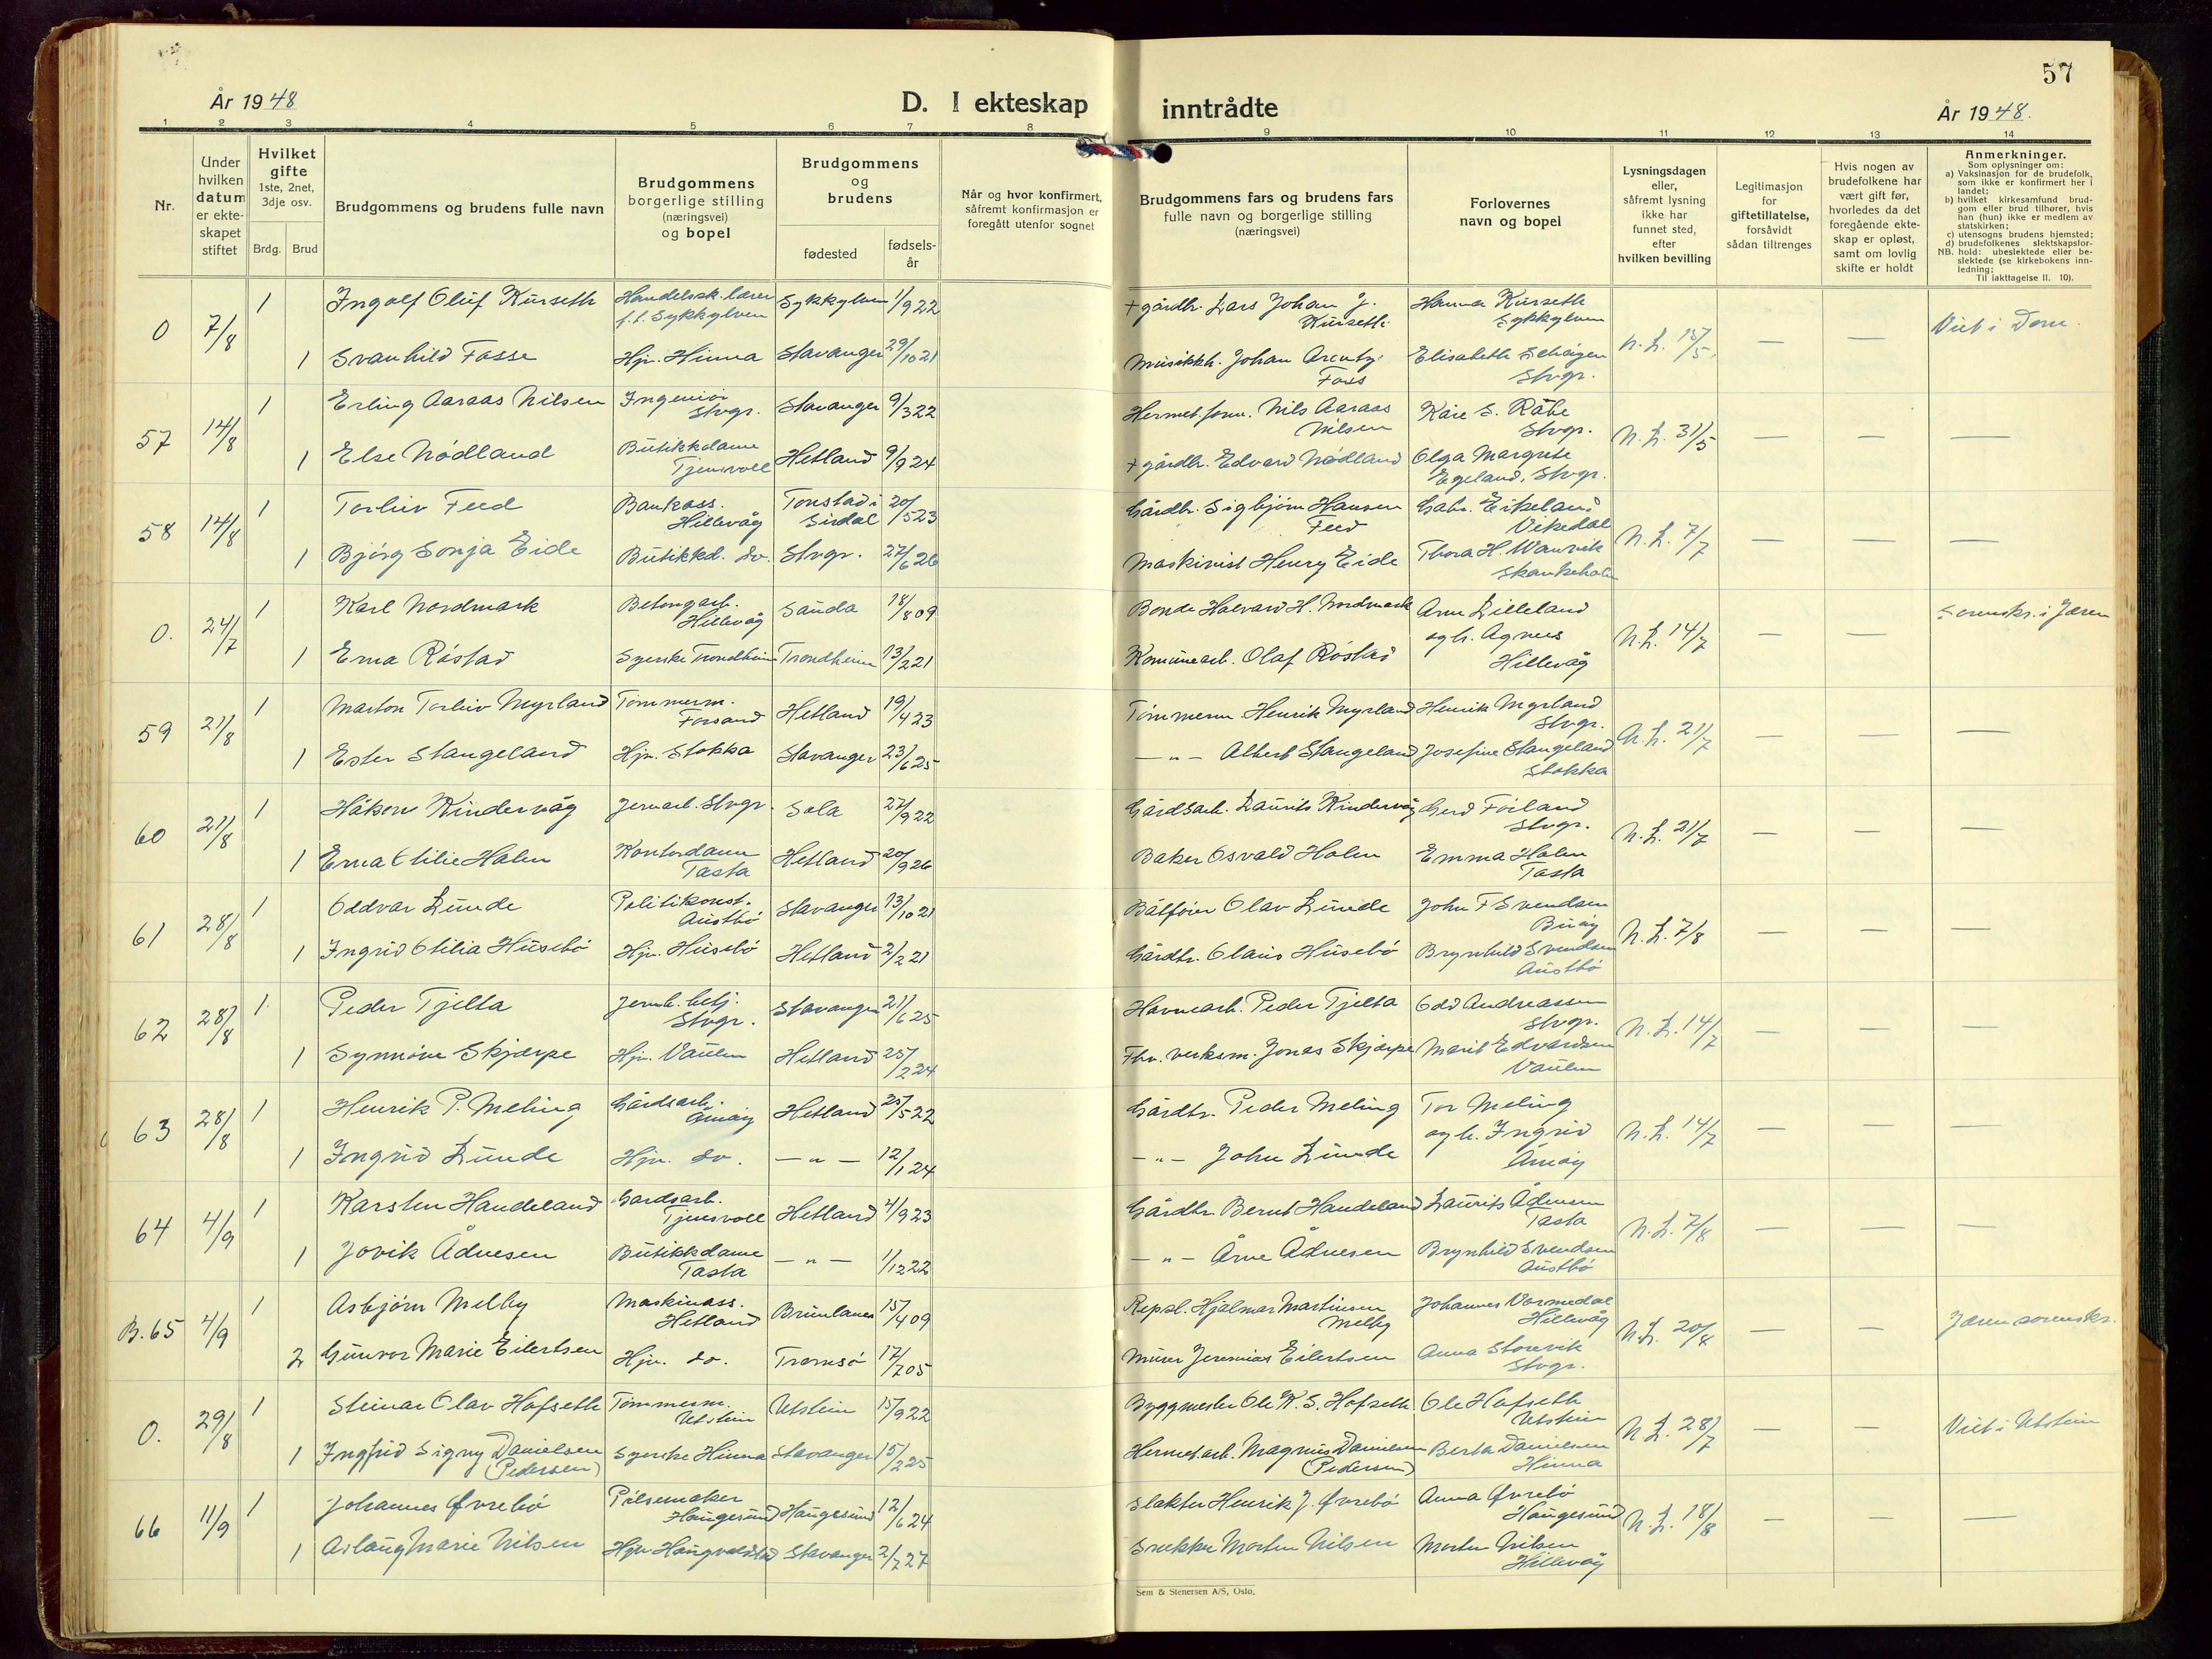 57
År 1948
D. I ekteskap inntrådte
År 1948.
1 2 3 4 5 6 7 8 9 10 11 12 13 14
Nr.
Under hvilken datum er ekteskapet stiftet
Hvilket gifte
1ste, 2net, 3dje osv.
Brdg. Brud
Brudgommens og brudens fulle navn
Brudgommens borgerlige stilling (næringsvei) og bopel
Brudgommens og brudens
fødested
fødselsår
Når og hvor konfirmert, såfremt konfirmasjon er foregått utenfor sognet
Brudgommens fars og brudens fars fulle navn og borgerlige stilling (næringsvei)
Forlovernes navn og bopel
Lysningsdagen eller, såfremt lysning ikke har funnet sted, efter hvilken bevilling
Legitimasjon for giftetillatelse, forsåvidt sådan tiltrenges
Hvis nogen av brudefolkene har vært gift før, hvorledes da det foregående ekteskap er opløst, samt om lovlig skifte er holdt
Anmerkninger.
Som oplysninger om:
a) Vaksinasjon for de brudefolk, som ikke er konfirmert her i landet;
b) hvilket kirkesamfund brudgom eller brud tilhører, hvis han (hun) ikke er medlem av statskirken;
c) utensogns brudens hjemsted;
d) brudefolkenes slektskapsforhold: ubeslektede eller beslektede (se kirkebokens innledning;
NB. Til iakttagelse II. 10).
0 7/8 1 Ingolf Oluf Kurseth Handelssk.lærer f.t. Sykkylven Sykkylven 1/9 22 + gårdbr. Lars Johan J. Kurseth Hanna Kurseth Sykkylven N.L. 15/5 — — Viet i Dom.
1 Svanhild Fosse Hjv. Hinna Stavanger 29/10 21 Musikkh. Johan Arentz Foss Elisabeth Stvgr.
57 14/8 1 Erling Aaraas Nilsen Ingeniør Stvgr. Stavanger 9/3 22 Hermet.form. Nils Aaraas Nilsen Kåre S. Råbe Stvgr. N.L. 31/5 — — —
1 Else Nødland Butikkdame Tjensvoll Hetland 9/9 24 + gårdbr. Edvard Nødland Olga Margrete Egeland, Stvgr.
58 14/8 1 Torleiv Feed Bankass. Hillevåg Tonstad i Sirdal 20/5 23 Gårdbr. Sigbjørn Hansen Feed Gabr. Eikeland Vikedal N.L. 7/7 — — —
1 Bjørg Sonja Eide Butikkd. do. Stvgr. 27/6 26 Maskinist Henry Eide Thora H. Wanvik Skankeholm
0. 24/7 1 Karl Nordmark Betongarb. Hillevåg Sauda 18/8 09 Bonde Halvard H. Nordmark Arne Lilleland og h. Agnes Hillevåg N.L. 14/7 — — Sorenskr. i Jæren
1 Erna Røstad Syerske Trondheim Trondheim 13/2 21 Komunearb. Olaf Røstad
59 21/8 1 Marton Torleiv Myrland Tømmerm. Forsand Hetland 19/4 23 Tømmerm Henrik Myrland Henrik Myrland Stvgr. N.L. 21/7 — — —
1 Ester Stangeland Hjv. Stokka Stavanger 23/6 25 — " — Albert Stangeland Josefine Stangeland Stokka
60 21/8 1 Håkon Kindervåg Jernarb. Stvgr. Sola 27/9 22 Gårdsarb. Laurits Kindervåg Gerd Førland Stvgr. N.L. 21/7 — — —
1 Erna Otilie Holen Kontordame Tasta Hetland 20/9 26 Baker Osvald Holen Emma Holen Tasta
61 28/8 1 Oddvar Lunde Politikonst. Austbø Stavanger 13/10 21 Båtfører Olav Lunde John F Svendsen Buøy N.L. 7/8 — — —
1 Ingrid Otilia Husebø Hjv. Husebø Hetland 2/2 21 Gårdbr. Olaus Husebø Brynhild Svendsen Austbø
62 28/8 1. Peder Tjelta Jernb. betj. Stvgr. Stavanger 21/6 25 Havnearb. Peder Tjelta Odd Andreassen Stvgr. N.L. 14/7 — — —
1 Synnøve Skjærpe Hjv. Vaulen Hetland 25/2 24 Fhv. verksm. Jonas Skjærpe Marit Edvardsen Vaulen
63 28/8 1 Henrik P. Meling Gårdsarb. Åmøy Hetland 25/5 22 Gårdbr. Peder Meling Tor Meling og h. Ingrid Åmøy N.L. 14/7 — — —
1 Ingrid Lunde Hjv. do. — " — 12/1 24 — " — John Lunde
64 4/9 1 Karsten Handeland Gardsarb. Tjensvoll Hetland 4/9 23 Gårdbr. Bernt Handeland Laurits Ådnesen Tasta N.L. 7/8 — — —
1 Jovik Ådnesen Butikkdame Tasta — " — 1/12 22 — " — Arne Ådnesen Brynhild Svendsen Austbø
B. 65 4/9 1 Asbjørn Melby Maskinass. Hetland Brunlanes 15/4 09 Repsl. Hjalmar Martinsen Melby Johannes Vormedal Hillevåg N.L. 20/8 — — Jæren sorenskr.
2 Gunvor Marie Eilertsen Hjv. do. Tromsø 17/7 05 Murer Jeremias Eilertsen Anna Storevik Stvgr.
0. 29/8 1 Steinar Olav Hofseth Tømmerm. Utstein Utstein 15/9 22 Byggmester Ole K. S. Hofseth Ole Hofseth Utstein N.L. 28/7 — — Viet i Utstein
1 Ingfrid Signy Danielsen (Pedersen) Syerske Hinna Stavanger 15/2 25 Hermet.arb. Magnus Danielsen (Pedersen) Berta Danielsen Hinna
66 11/9 1 Johannes Øvrebø Pølsemaker Haugesund Haugesund 12/6 24 Slakter Henrik J. Øvrebø Anna Øvrebø Haugesund N.L. 18/8 — — —
1 Aslaug Marie Nilsen Hjv Stavanger 2/7 27 Snekker Morten Nilsen Morten Nilsen Hillevåg
Sem & Stenersen A/S, Oslo.